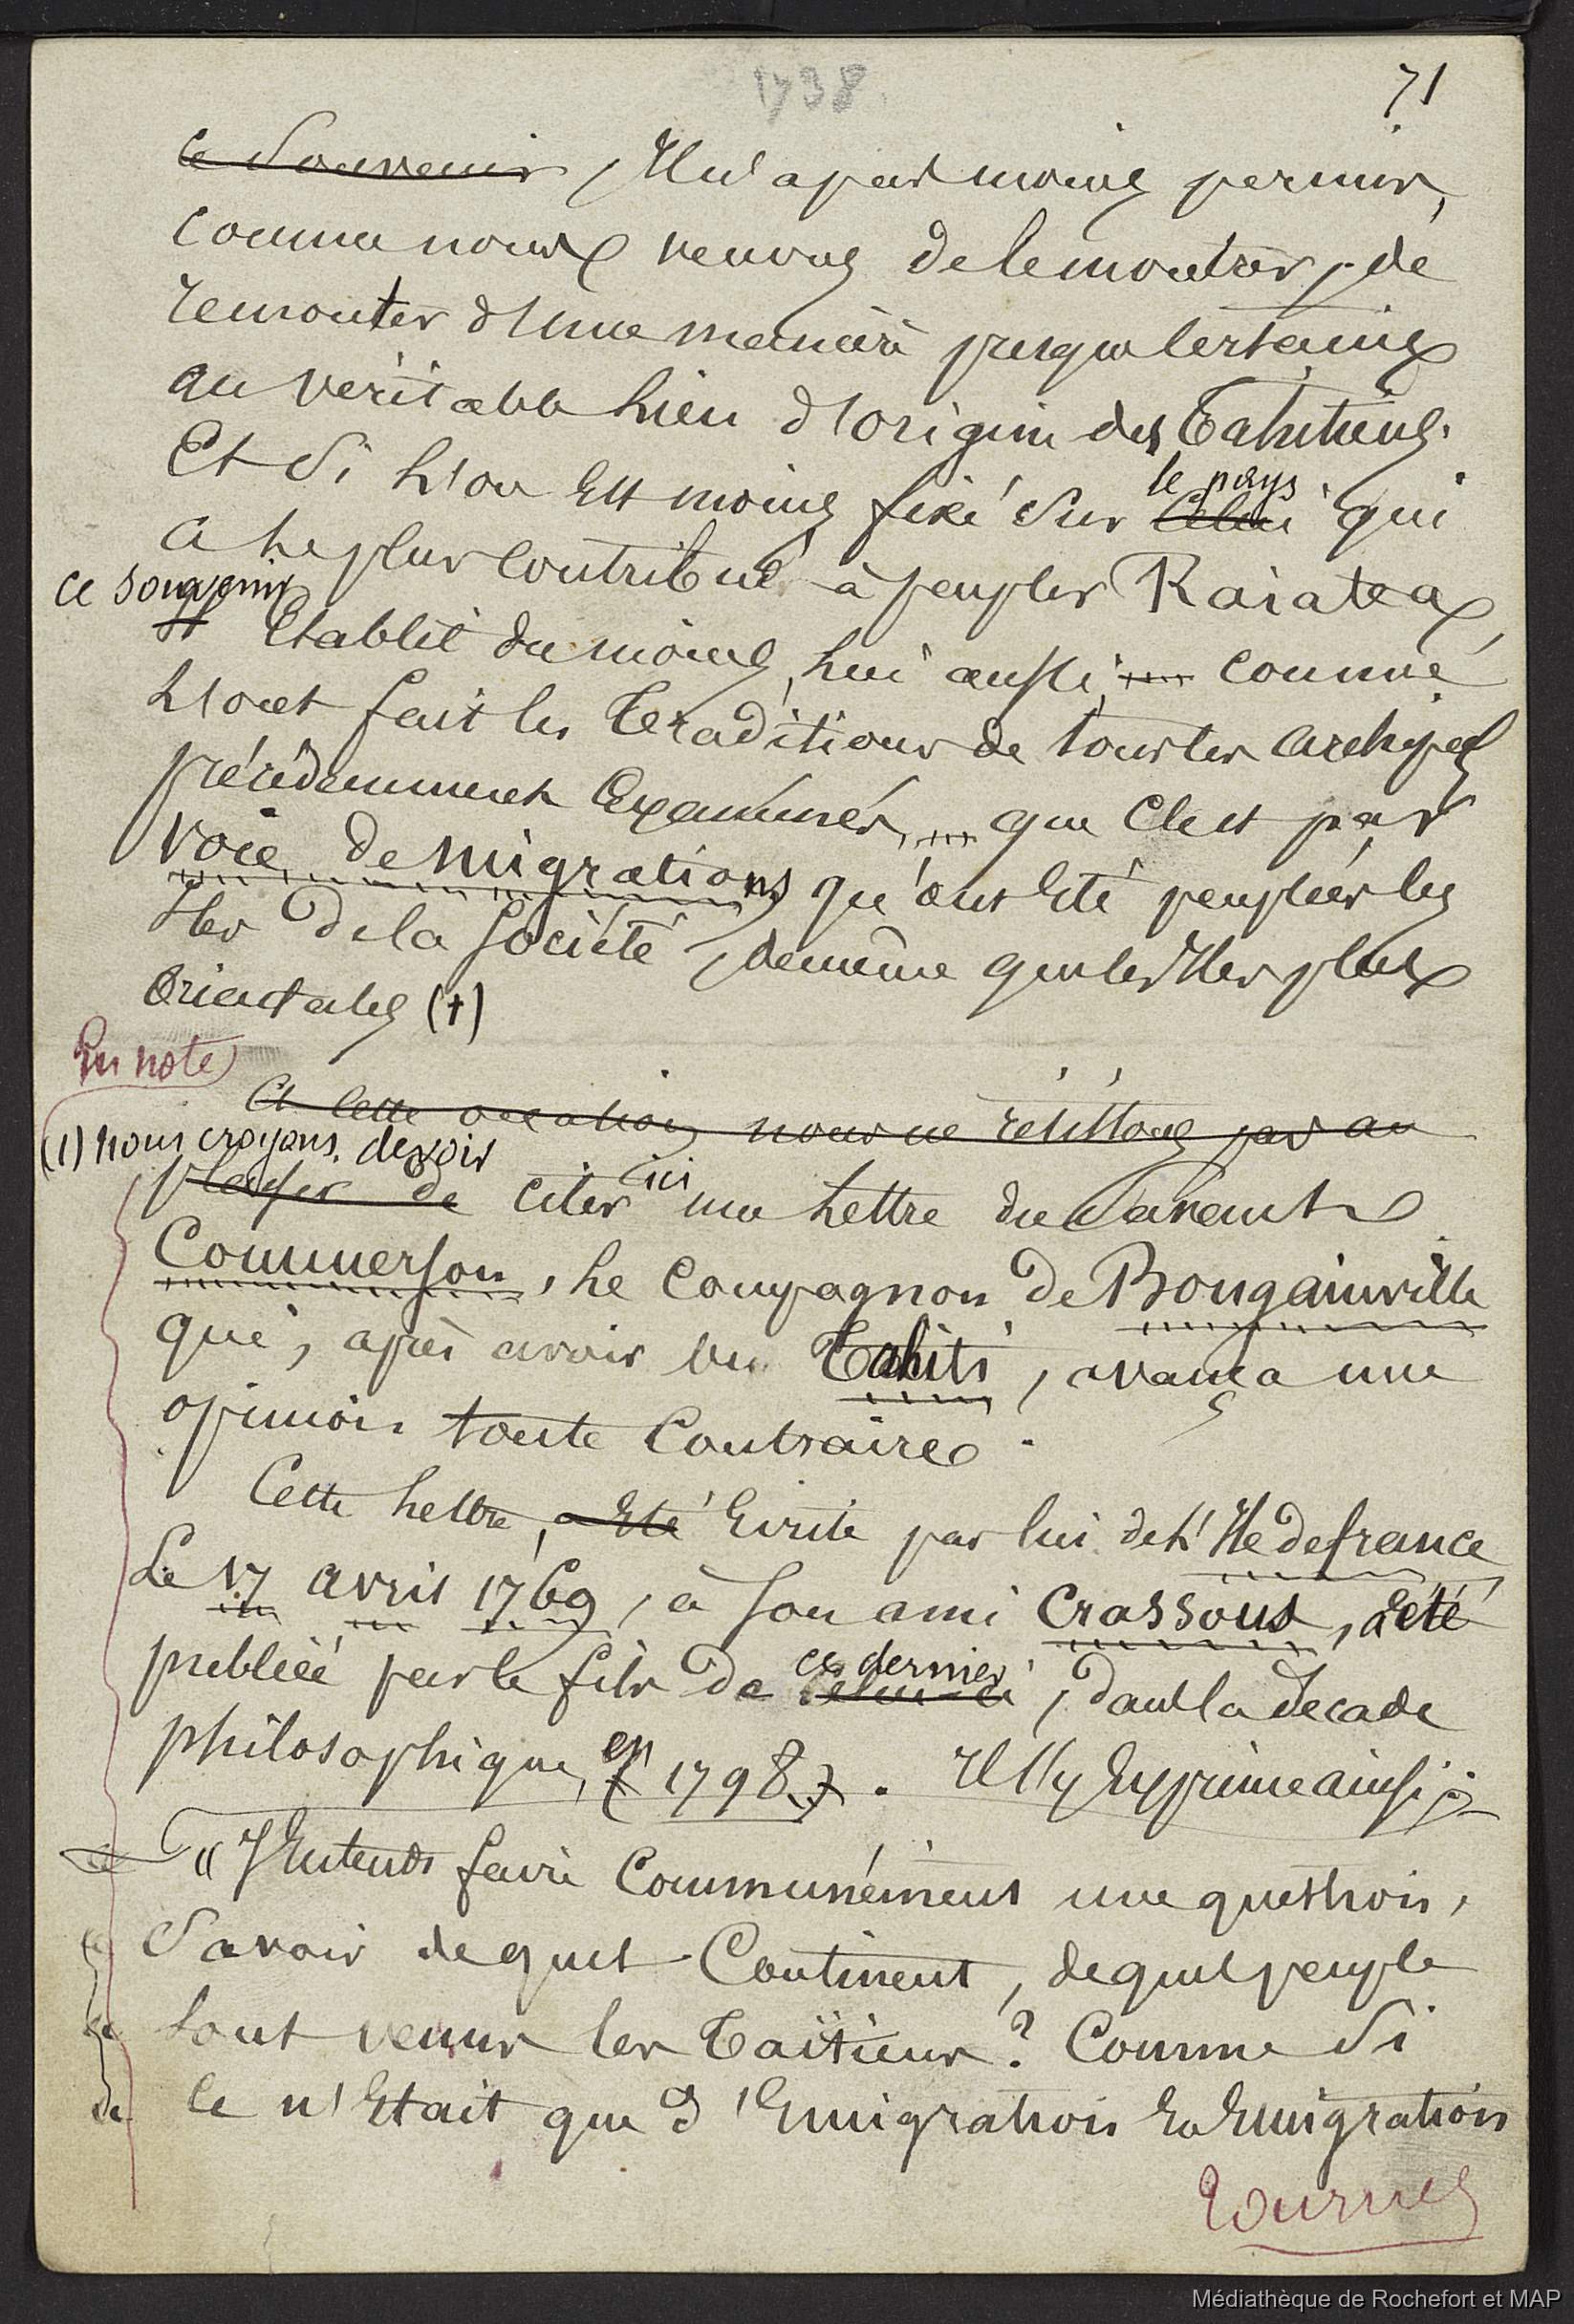 1738
71
ce souvenir, il n'a pas moins permis,
comme nous venons de le montrer, de
remonter d'une manière presque certaine
au véritable lieu d'origine des Tahitiens.
Et si l'on est moins fixé sur celui le pays qui
a le plus contribué à peupler Raiatea,
ce souvenir
il établit du moins, lui aussi, comme
l'ont fait les traditions de tous les archipels
précédemment examinés, que c'est par
voie de migrations qu'ont été peuplées les
îles de la Société, de même que les îles plus
orientales (1)
En note
A cette occasion nous ne résistons pas au
(1) nous croyons devoir
plaisir de citer ici une lettre du savant
Commerson, le compagnon de Bougainville
qui, après avoir vu Tahiti, avança une
opinion toute contraire.
Cette lettre, a été écrite par lui de l'Ile de france
Le 17 avril 1769, à son ami Crassous, a été
publiée par le fils de celui-ci ce dernier, dans la Décade
philosophique, en (1798). Il s'y exprime ainsi :
« J'entends faire communément une question,
Savoir de quel Continent, de quel peuple
sont venus les Taïtiens ? Comme si
ce n'était que d'émigration en émigration
tournez
Médiathèque de Rochefort et MAP